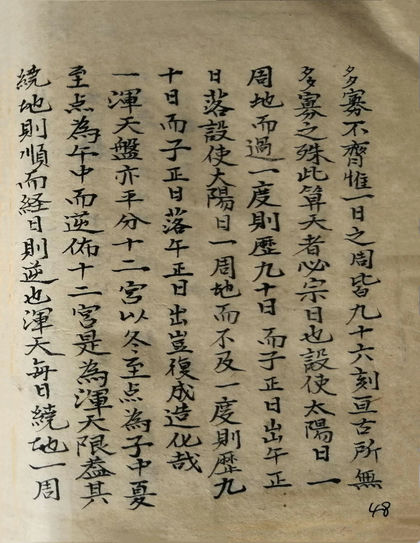 多寡不齊惟一日之周皆九十六刻亘古所無
多寡之殊此算天者必宗日也設使太陽日一
周地而過一度則歷九十日而子正日出午正
日落設使太陽日一周地而不及一度則歷九
十日而子正日落午正日出豈復成造化哉
一渾天盤亦平分十二宮以冬至点為子中夏
至点為午中而逆佈十二宮是為渾天限蓋其
繞地則順而経日則逆也渾天每日繞地一周
48